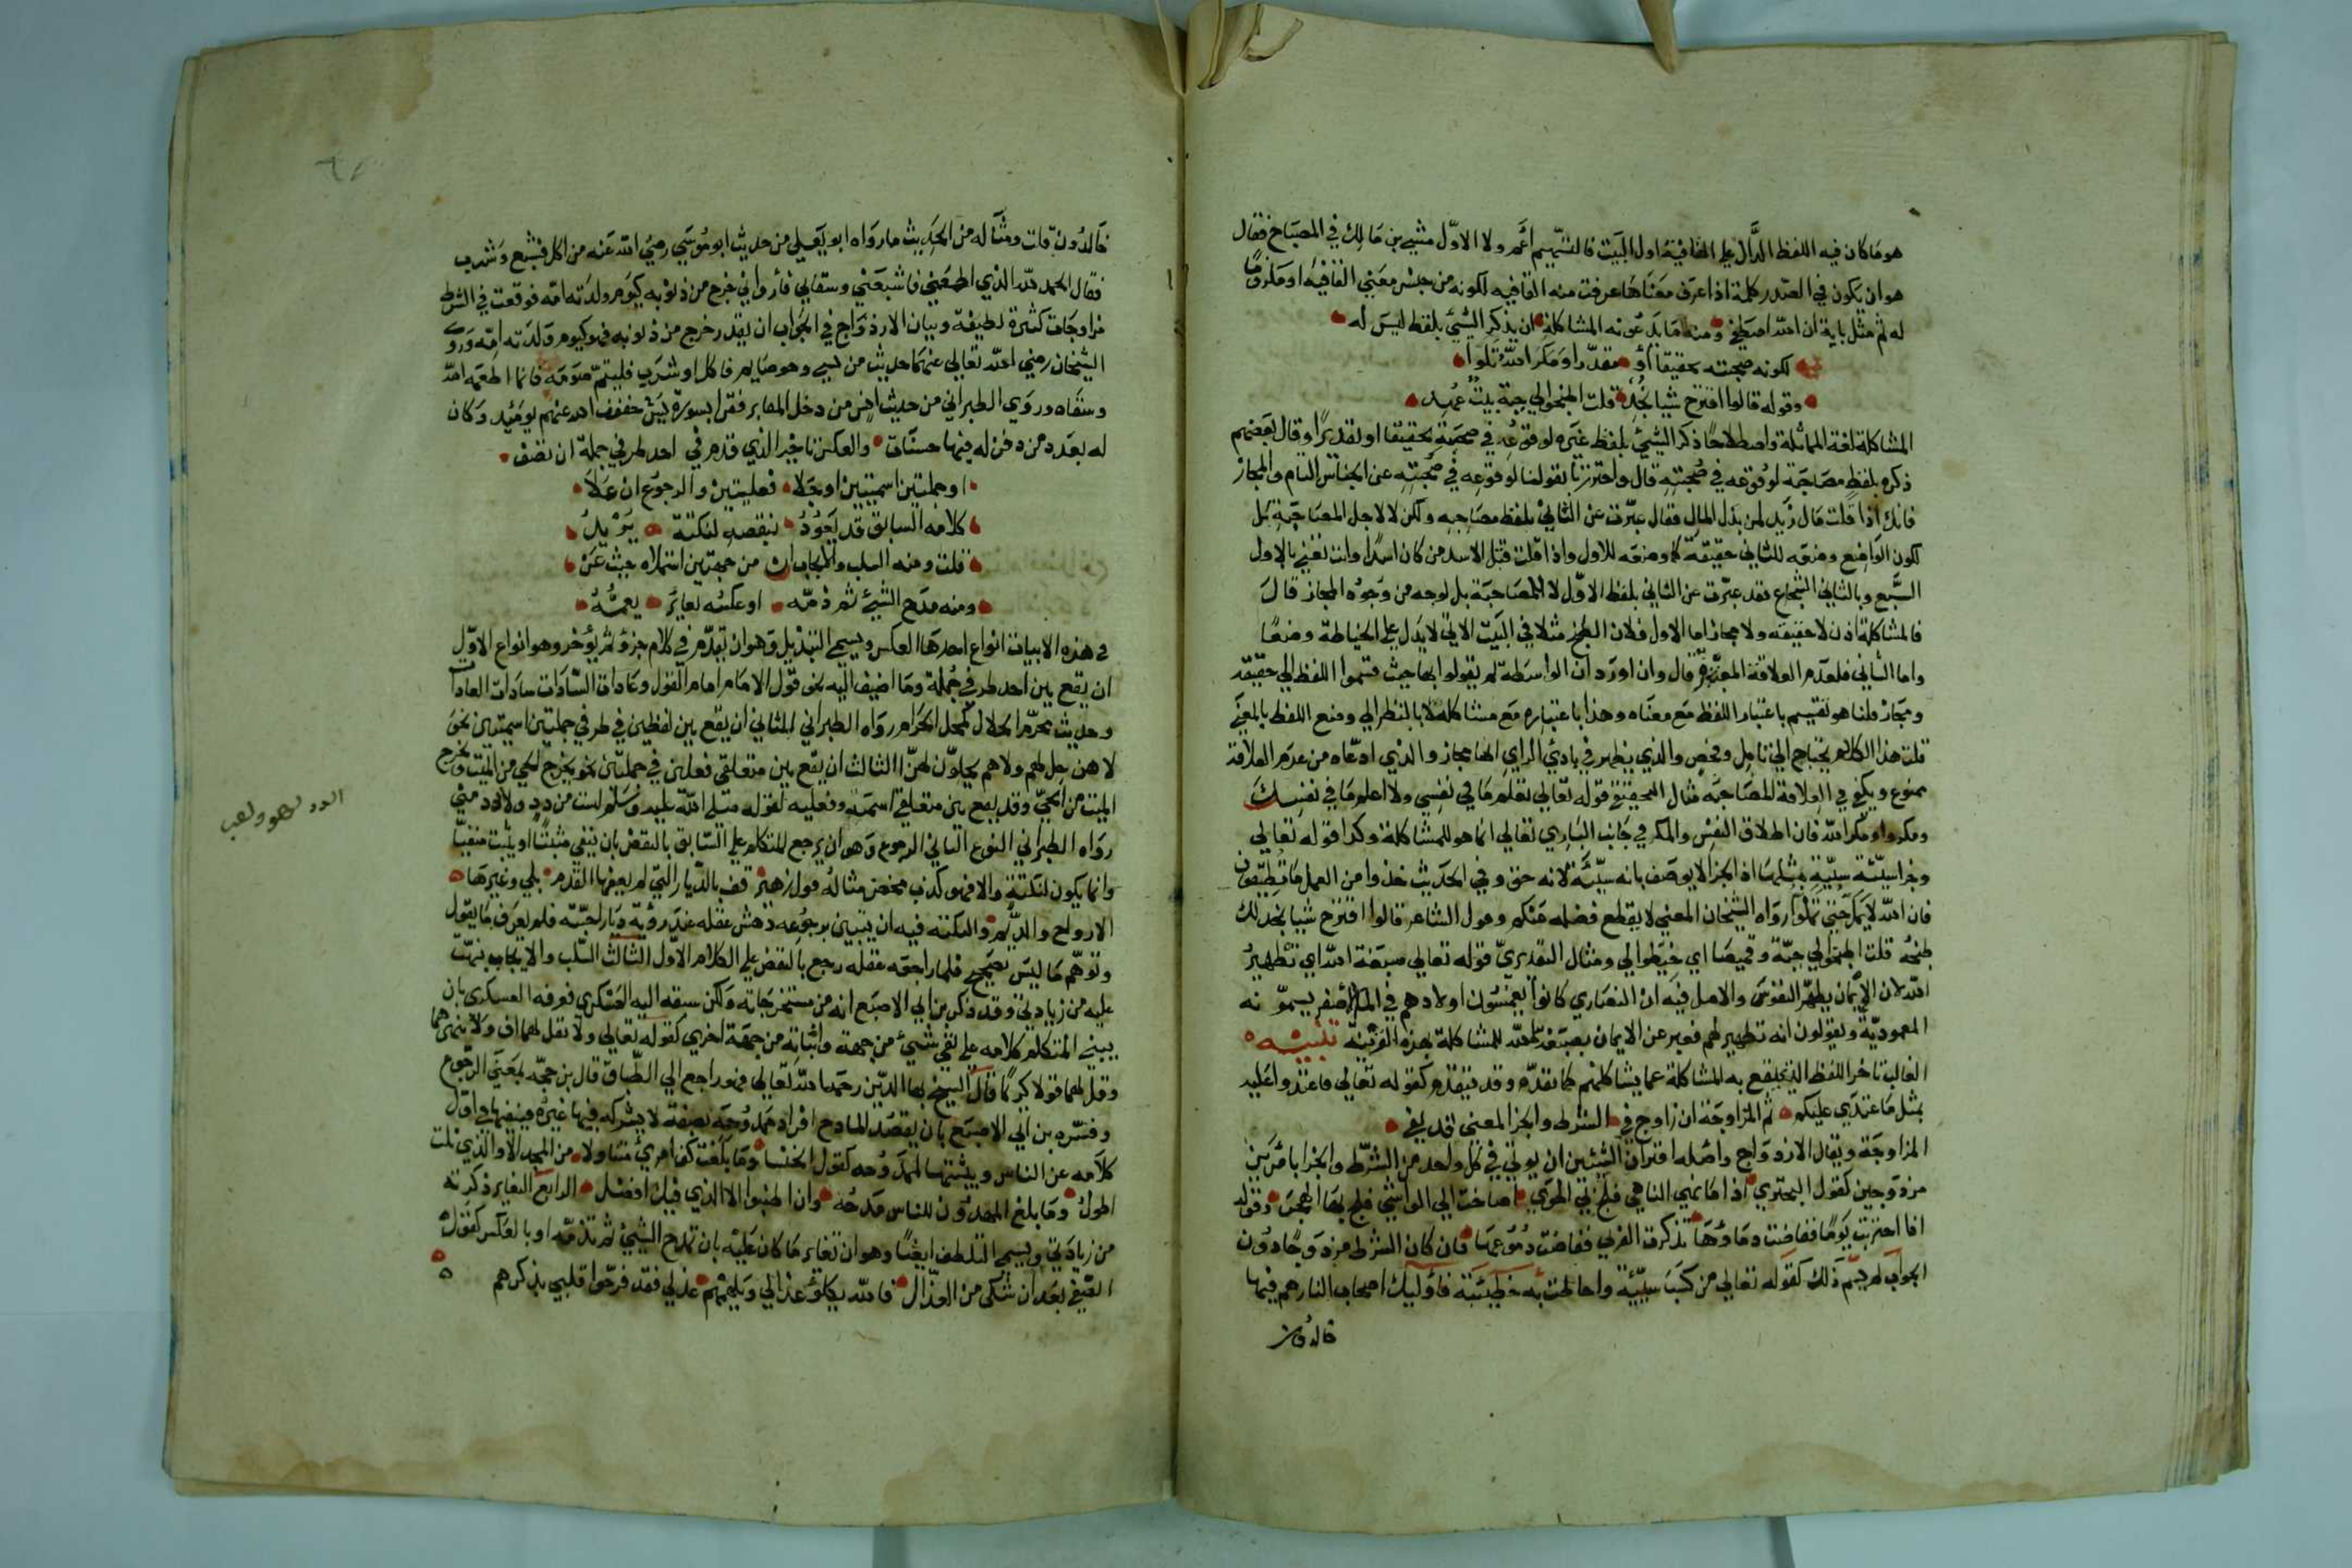 هو ما كان فيه اللفظ الدال على القافية اول البيت فالتسهيم اعم ولا الاول مشي بن مالك في المصباح فقال
هو ان يكون في الصدر كلمة اذا عرف معناها عرفت منه القافيه لكونه من جنس معني القافيه او ملزوما
له ثم مثل باية ان الله اصطفي ومنه ما يدعونه المشاكلة ان يذكر الشيئ بلفظ ليس له
لكونه صحبته تحقيقا أو مقدرا ومكر الله تلوا
وقوله قالوا اقترح شيا نجد قلت اطبخوا لي جبة بيت عهد
المشاكلة لغة المماثلة واصطلاحا ذكر الشيئ بلفظ غيره لوقوعه في صحبته تحقيقا او تقديرا وقال بعضهم
ذكره بلفظ مصاحبه لوقوعه في صحبته قال واحترزنا بقولنا لوقوعه في صحبته عن الجناس التام والمجاز
فانك اذا قلت مال زيد لمن بذل المال فقال عبرت عن الثاني بلفظ مصاحبه ولكن لا لاجل المصاحبة بل
لكون الواضع وضعه للثاني حقيقة كما وضعه للاول واذا قلت قتل الاسد من كان اسدا وانت تعني بالاول
السبع وبالثاني الشجاع فقد عبرت عن الثاني بلفظ الاول لا للمصاحبة بل لوجه من وجوه المجاز قال
فالمشاكلة اذن لا حقيقه ولا مجاز اما الاول فلان الطبخ مثلا في البيت الاتي لا يدل علي الخياطة وضعا
واما الثاني فلعدم العلاقة المعتبرة قال وان اورد ان الواسطة لم يقولوا بها حيث قسموا اللفظ الي حقيقة
ومجاز قلنا هو تقسيم باعتبار اللفظ مع معناه وهذا باعتباره مع مشاكله لا بالنظر الي وضع اللفظ بالمعني
قلت هذا الكلام يحتاج الي تامل وفحص والذي يظهر في بادئ الراي انها مجاز والذي ادعاه من عدم العلاقة
ممنوع ويكفي في العلاقة المصاحبة مثال التحقيقي قوله تعالي تعلم ما في نفسي ولا اعلم ما في نفسك
ومكروا ومكر الله فان اطلاق النفس والمكر في جانب الباري تعالي انما هو للمشاكلة وكذا قوله تعالي
وجزا سيئة سيئة مثلها اذ الجزا لا يوصف بانه سيئة لانه حق وفي الحديث خذوا من العمل ما تطيقون
فان الله لا يمل حتي تملوا رواه الشيخان المعني لا يقطع فضله عنكم وقول الشاعر قالوا اقترح شيا نجد لك
طبخه قلت اطبخوا لي جبة وقميصا اي خيطوا لي ومثال التقديري قوله تعالي صبغة الله اي تطهير
الله لان الايمان يطهر النفوس والاصل فيه ان النصاري كانوا يغمسون اولادهم في الماء الاصفر يسمونه
المعمودية ويقولون انه تطهير لهم فعبر عن الايمان بصبغة الله للمشاكلة بهذه القرينة تنبيه
الغالب تاخر اللفظ الذي تقع به المشاكلة عما يشاكلهم كما تقدم وقد يتقدم كقوله تعالي فاعتدوا عليه
بمثل ما اعتدي عليكم ثم المزاوجة ان زاوج في الشرط والجزا لمعني تقد يفي
المزاوجة ويقال الازدواج واصله اقتران الشيئين ان يوتي في كل واحد من الشرط والجزا بامرين
مزدوجين كقول البحتري اذا ما نهي الناهي فلج بي الهوي اصاخت الي الواشي فلج بها الهجر وقوله
اذا احتربت يوما ففاضت دماؤها تذكرت القربي ففاضت دموعها فان كان الشرط مزدوجا دون
الجواب لم يسم ذلك كقوله تعالي من كسب سيئة واحاطت به خطيئته فاوليك اصحاب النار هم فيها
خالدون
خالدون قلت ومثاله من الحديث ما رواه ابو يعلي من حديث ابو موسي رضي الله عنه من اكل فشبع وشرب
فقال الحمد لله الذي اطعمني فاشبعني وسقاني فأرواني خرج من ذنوبه كيوم ولدته امه فوقعت في الشرط
مزاوجات كثيرة لطيفة وبيان الازدواج في الجواب ان يقدر خرج من ذنوبه فهو كيوم ولدته امه وروي
الشيخان رضي الله تعالي عنهما حديث من نسي وهو صايم فاكل او شرب فليتم صومه فانما اطعمه الله
وسقاه وروي الطبراني من حديث انس من دخل المقابر فقرا بسورة يس خفف الله عنهم يومئذ وكان
له بعدد من دفن له فيها حسنات والعكس تاخير الذي قدم في احد طرفي جملة ان تضف
او جملتين اسميتين او جلا فعليتين والرجوع ان علا
كلامه السابق قد يعود بنقضه لنكتة يريد
قلت ومنه السلب والايجاب ان من جهتين اشتملاه حيث عن
ومنه مدح الشيئ ثم ذمه او عكسه تغاير يعمه
في هذه الابيات انواع احدها العكس ويسمي التبديل وهو ان تقدم في كلام جزؤ ثم يؤخر وهو انواع الاول
ان يقع بين احد طرفي جملة وما اضيف اليه نحو قول الامام امام القول وعادات السادات سادات العادات
وحديث محرم الحلال كمحل الحرام رواه الطبراني الثاني ان يقع بين لفظين في طرفي جملتين اسميتين نحو
لا هن حل لهم ولا هم يحلون لهن الثالث ان يقع بين متعلقي فعلين في جملتين نحو يخرج الحي من الميت ويخرج
الميت من الحي وقد يقع بين متعلقي اسمية وفعليه لقوله صلي الله عليه وسلم لست من دد ولا دد مني
الدد لهو ولعب
رواه الطبراني النوع الثاني الرجوع وهو ان يرجع المتكلم علي السابق بالنقض بان ينفي مثبتا او يثبت منفيا
وانما يكون لنكتة والا فهو كذب محض مثاله قول زهير قف بالديار التي لم يعفها القدم بلي وغيرها
الارواح والديم والنكته فيه ان تبين برجوعه دهش عقله عند روية ديار احبته فلم يعرف ما يقول
وتوهم ما ليس بصحيح فلما راجعه عقله رجع بالنقض علي الكلام الاول الثالث السلب والايجاب نبهت
عليه من زيادتي وقد ذكر بن ابي الاصبع انه من مستخرجاته ولكن سبقه اليه العسكري فعرفه العسكري بان
يبني المتكلم كلامه علي نفي شيئ من جهة واثباته من جهة اخري كقوله تعالي ولا تقل لهما اف ولا تنهرهما
وقل لهما قولا كريما قال الشيخ بها الدين رحمه الله تعالي فهو راجع الي الطباق قال بن حجه بمعني الرجوع
وفسره بن ابي الاصبع بان يقصد المادح افراد ممدوحه بصفة لا يشركه فيها غيره فينفيها في اول
كلامه عن الناس ويثبتها لممدوحه كقول الخنسا وما بلغت كف امرئ متناولا من المجد الا والذي نلت
اطول وما بلغ المهدون للناس مدحة وان اطنبوا الا الذي فيك افضل الرابع التغاير ذكرته
من زيادتي ويسمي التلطف ايضا وهو ان تغاير ما كان عليه بان تمدح الشيئ ثم تذمه او بالعكس كقول
الصفي بعد ان شكي من العذال فالله يكلؤ عذالي ويلهمهم عذلي فقد فرحوا قلبي بذكرهم